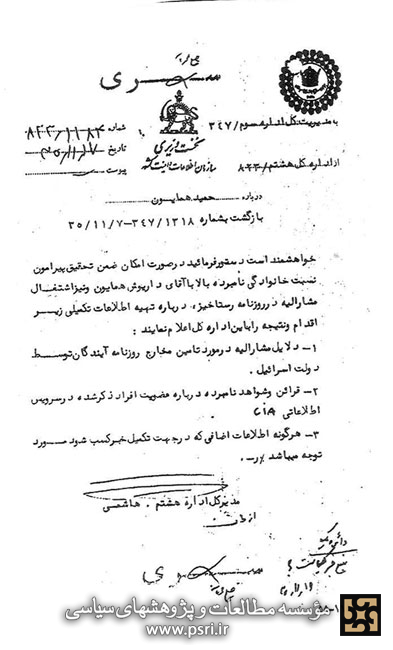 سری
شماره
به مدیریت کل اداره سوم/۳۴۷
نخست وزیری
تاریخ
سازمان اطلاعات و امنیت کشور
از اداره کل هشتم/۸۲۲
پیوست
درباره حمید همایون
بازگشت بشماره ۳۴۷/۱۲۱۸-۳۵/۱۱/۷
خواهشمند است دستور فرمائید در صورت امکان ضمن تحقیق پیرامون
نسبت خانوادگی نامبرده بالا با آقای داریوش همایون و نیز اشتغال
مشارالیه در روزنامه رستاخیز، درباره تهیه اطلاعات تکمیلی زیر
اقدام و نتیجه را باین اداره کل اعلام نمایند :
۱- دلایل مشارالیه در مورد تامین مخارج روزنامه آیندگان توسط
دولت اسرائیل .
۲- قرائن و شواهد نامبرده درباره عضویت افراد ذکر شده در سرویس
اطلاعاتی CiA .
۳- هرگونه اطلاعات اضافی که در جهت تکمیل خبر کسب شود مورد
توجه میباشد
مدیر کل اداره هشتم . هاشمی
سری
مؤسسه مطالعات و پژوهشهای سیاسی
www.psri.ir